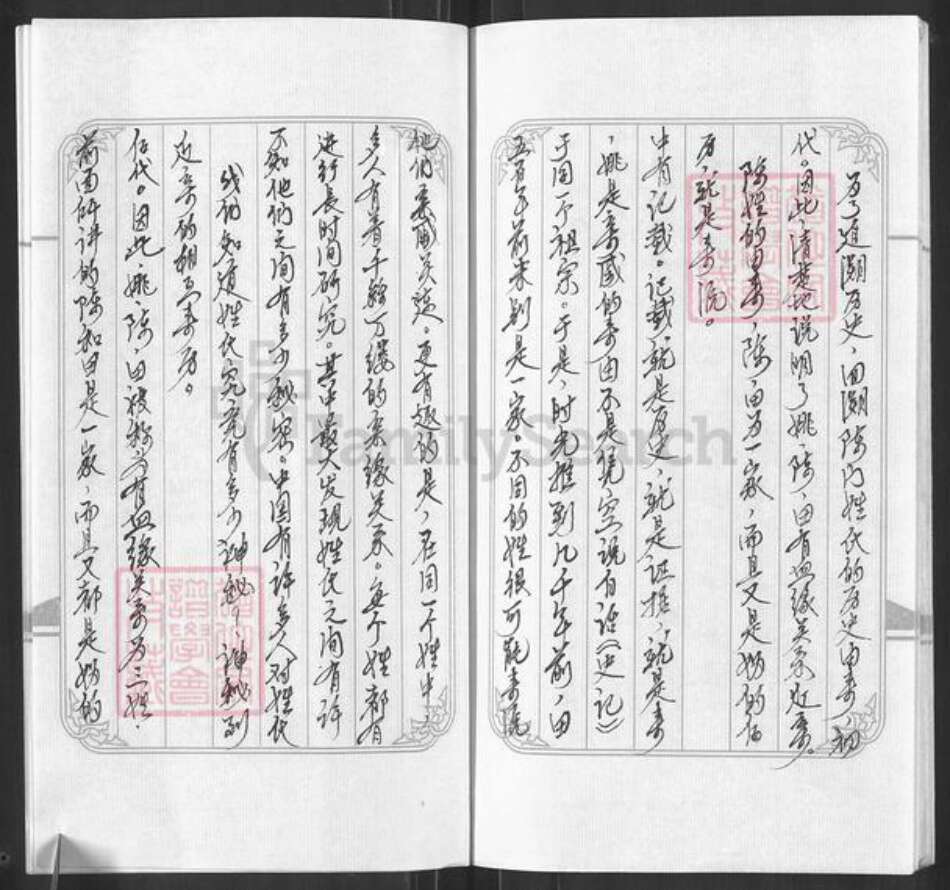 为了追溯历史，回溯陈门姓氏的历史由来，初
代。因此，清楚地说明了姚、陈、田有血缘关系近亲。
陈姓的由来，陈、田为一家，而且又是妫的后
历，就是来源。
中有记载。记载就是历史，就是证据，就是来
，姚是亲戚的来由不是凭空说白话《史记》
于同一个祖宗。于是，时光推到几千年前，田
五百年前未别是一家，不同的姓很可能来源
他们亲成关该。更有趣的是，在同一个姓中，
多人有着千丝万缕的亲缘关系。每个姓都有
进行长时间研究。其中最大发现姓氏之间有许
不知他们之间有多少秘密。中国有许多人对姓氏
我们知道姓氏究竟有多少神秘，神秘到
近亲的相互来历。
后代。因此姚、陈、田被称为有血缘关系为三姓，
前面所讲的陈和田是一家，而且又都是妫的
FamilySearch